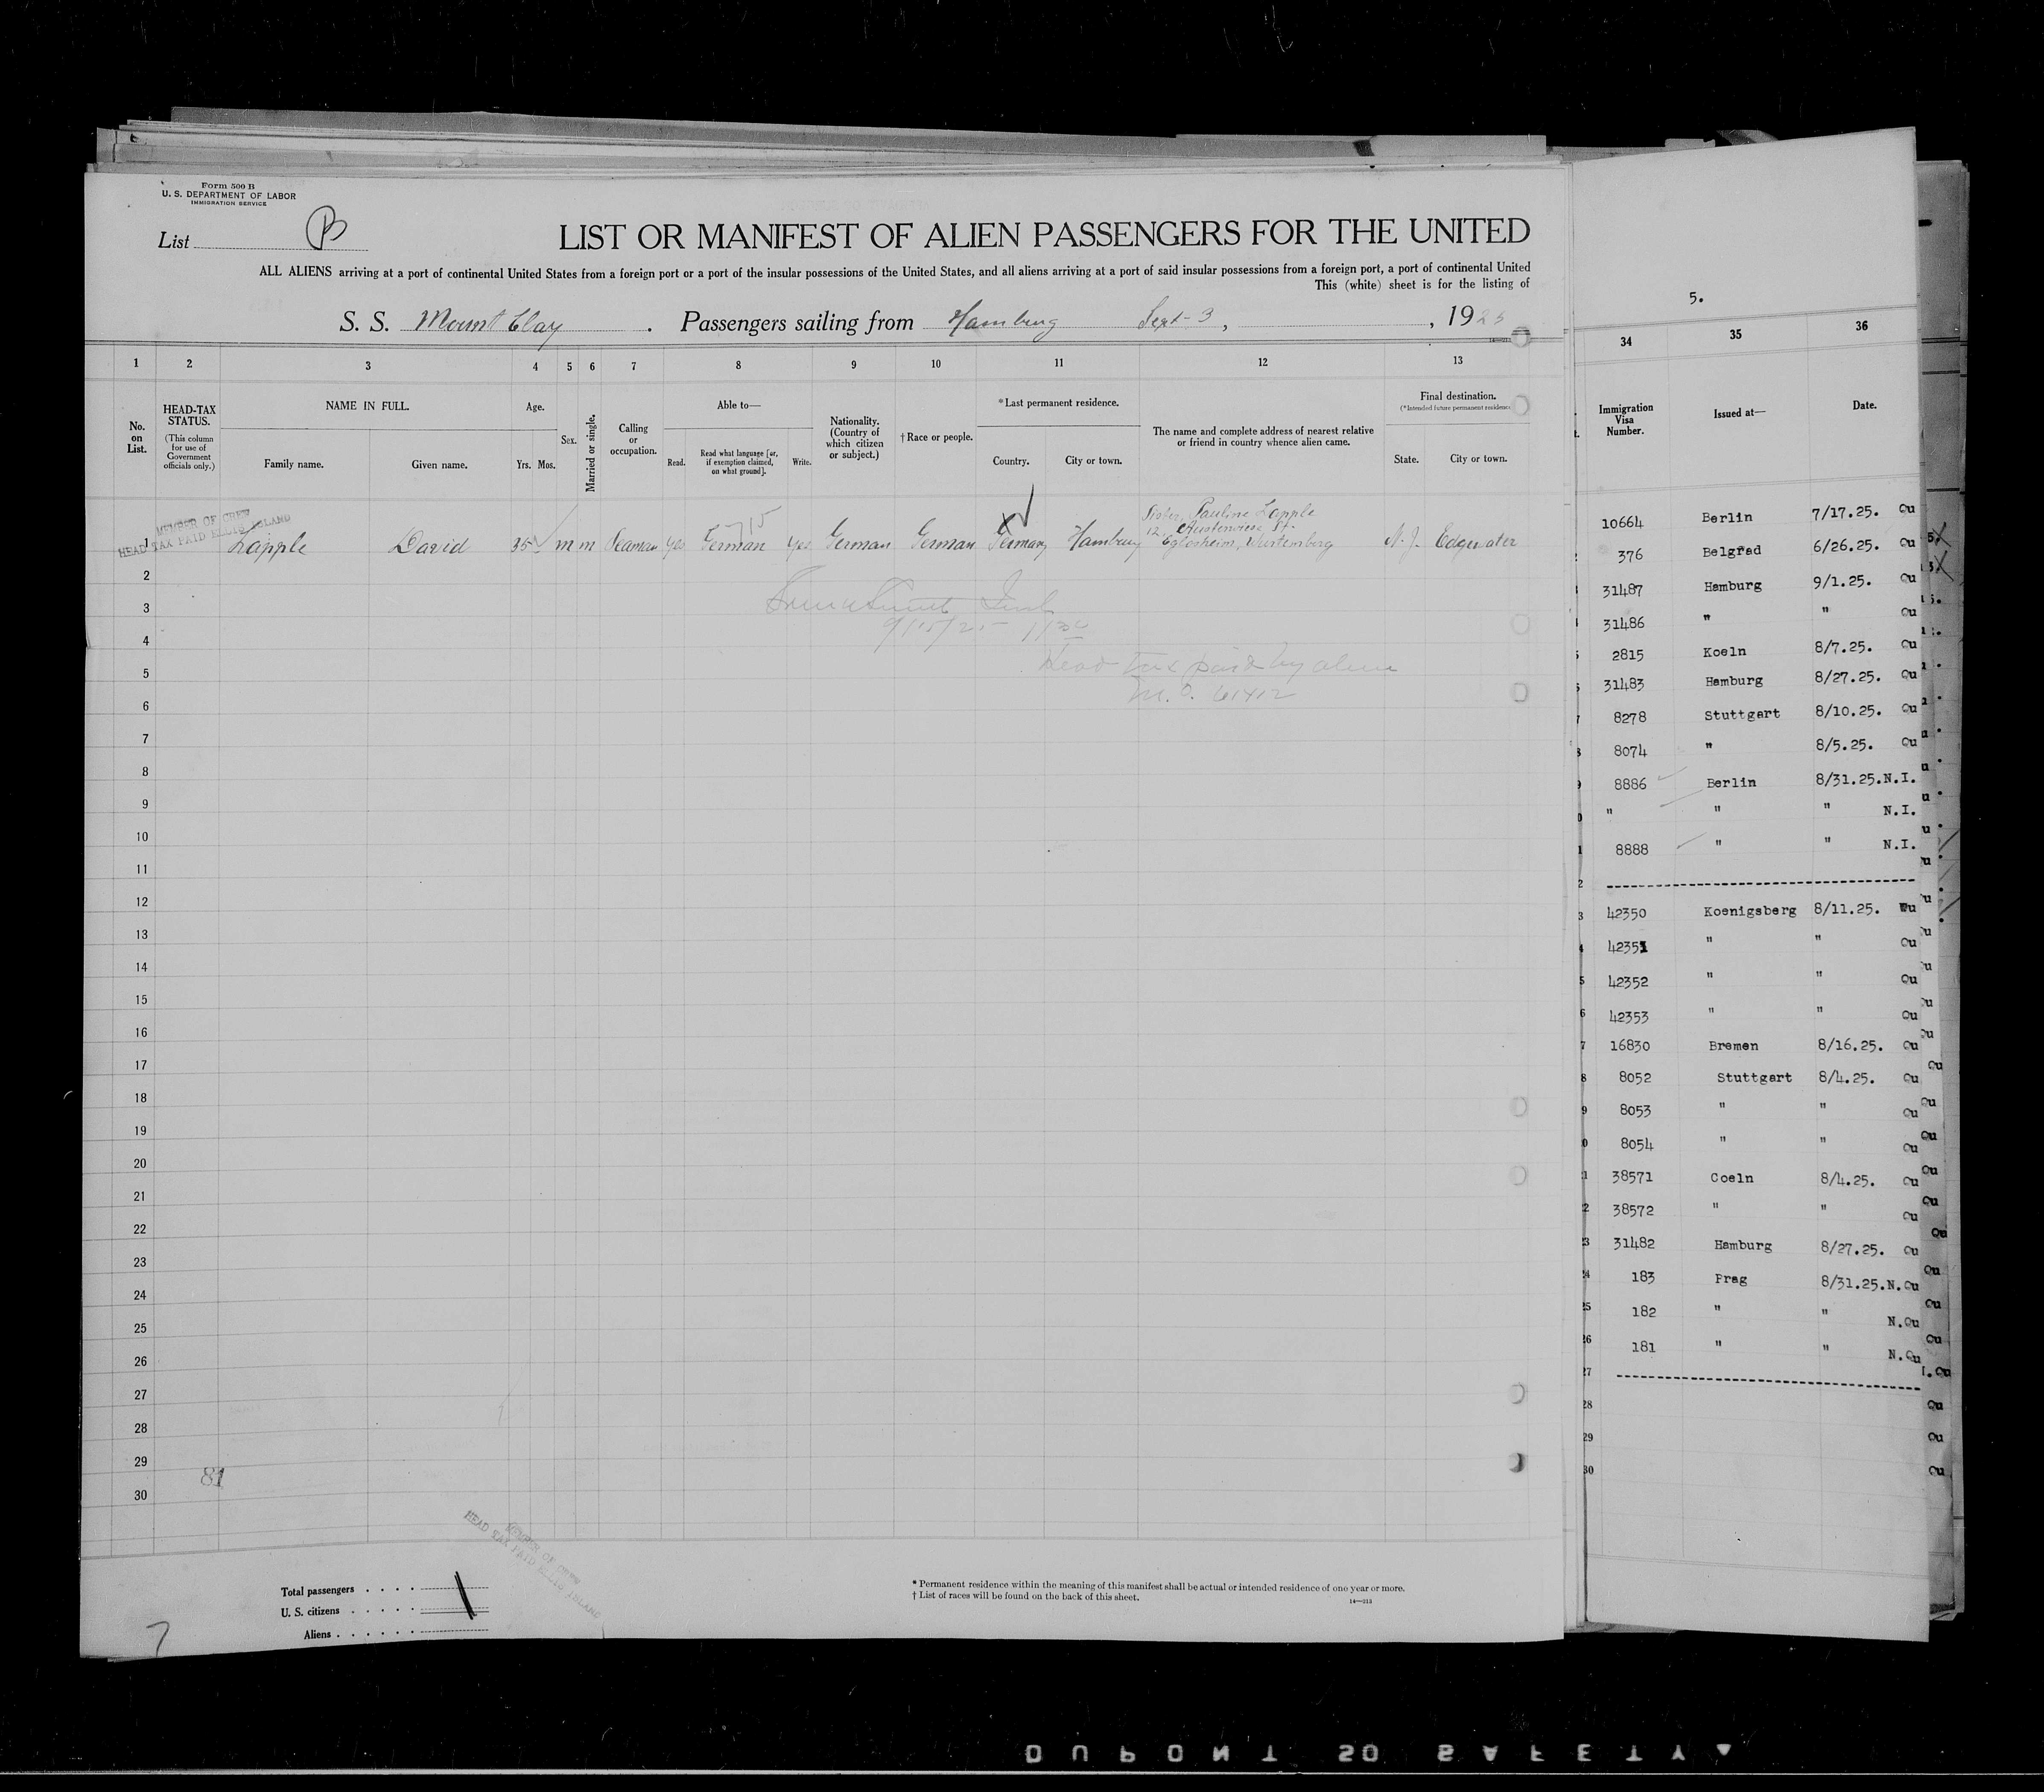 Form 500 B
U. S. DEPARTMENT OF LABOR
IMMIGRATION SERVICE
List B
LIST OR MANIFEST OF ALIEN PASSENGERS FOR THE UNITED
ALL ALIENS arriving at a port of continental United States from a foreign port or a port of the insular possessions of the United States, and all aliens arriving at a port of said insular possessions from a foreign port, a port of continental United
This (white) sheet is for the listing of
S. S. Mount Clay . Passengers sailing from Hamburg Sept 3 , , 1925
1 2 3 4 5 6 7 8 9 10 11 12 13
No. on List.
HEAD-TAX STATUS.
(This column for use of Government officials only.)
NAME IN FULL.
Family name. Given name.
Age.
Yrs. Mos.
Sex.
Married or single.
Calling or occupation.
Able to—
Read. Read what language [or, if exemption claimed, on what ground]. Write.
Nationality. (Country of which citizen or subject.)
† Race or people.
*Last permanent residence.
Country. City or town.
The name and complete address of nearest relative or friend in country whence alien came.
Final destination.
(*Intended future permanent residence
State. City or town.
MEMBER OF CREW
HEAD TAX PAID ELLIS ISLAND
715
Sister, Pauline Lapple
12
1 Lapple David 35 m m Seaman yes German yes German German Germany Hamburg Eglosheim, Wurtemberg N. J. Edgewater
2
3
9/15/25 1130
4
Head tax paid by alien
5
M. O. 61412
6
7
8
9
10
11
12
13
14
15
16
17
18
19
20
21
22
23
24
25
26
27
28
29
81
30
MEMBER OF CREW
HEAD TAX PAID ELLIS ISLAND
Total passengers
U. S. citizens
Aliens
7
* Permanent residence within the meaning of this manifest shall be actual or intended residence of one year or more.
† List of races will be found on the back of this sheet.
14—213
5.
34 35 36
Immigration Visa Number.
Issued at—
Date.
10664 Berlin 7/17.25. Qu
376 Belgrad 6/26.25. Qu
31487 Hamburg 9/1.25. Qu
31486 " " Qu
2815 Koeln 8/7.25. Qu
31483 Hamburg 8/27.25. Qu
8278 Stuttgart 8/10.25. Qu
8074 " 8/5.25. Qu
8886 Berlin 8/31.25.N.I.
" " " N.I.
8888 " " N.I.
42350 Koenigsberg 8/11.25. Qu
42351 " " Qu
42352 " " Qu
42353 " " Qu
16830 Bremen 8/16.25. Qu
8052 Stuttgart 8/4.25. Qu
8053 " " Qu
8054 " " Qu
38571 Coeln 8/4.25. Qu
38572 " " Qu
31482 Hamburg 8/27.25. Qu
183 Prag 8/31.25.N.Qu
182 " " N.Qu
181 " " N.Qu
27
28
29
30
DUPONT SO SAFETY